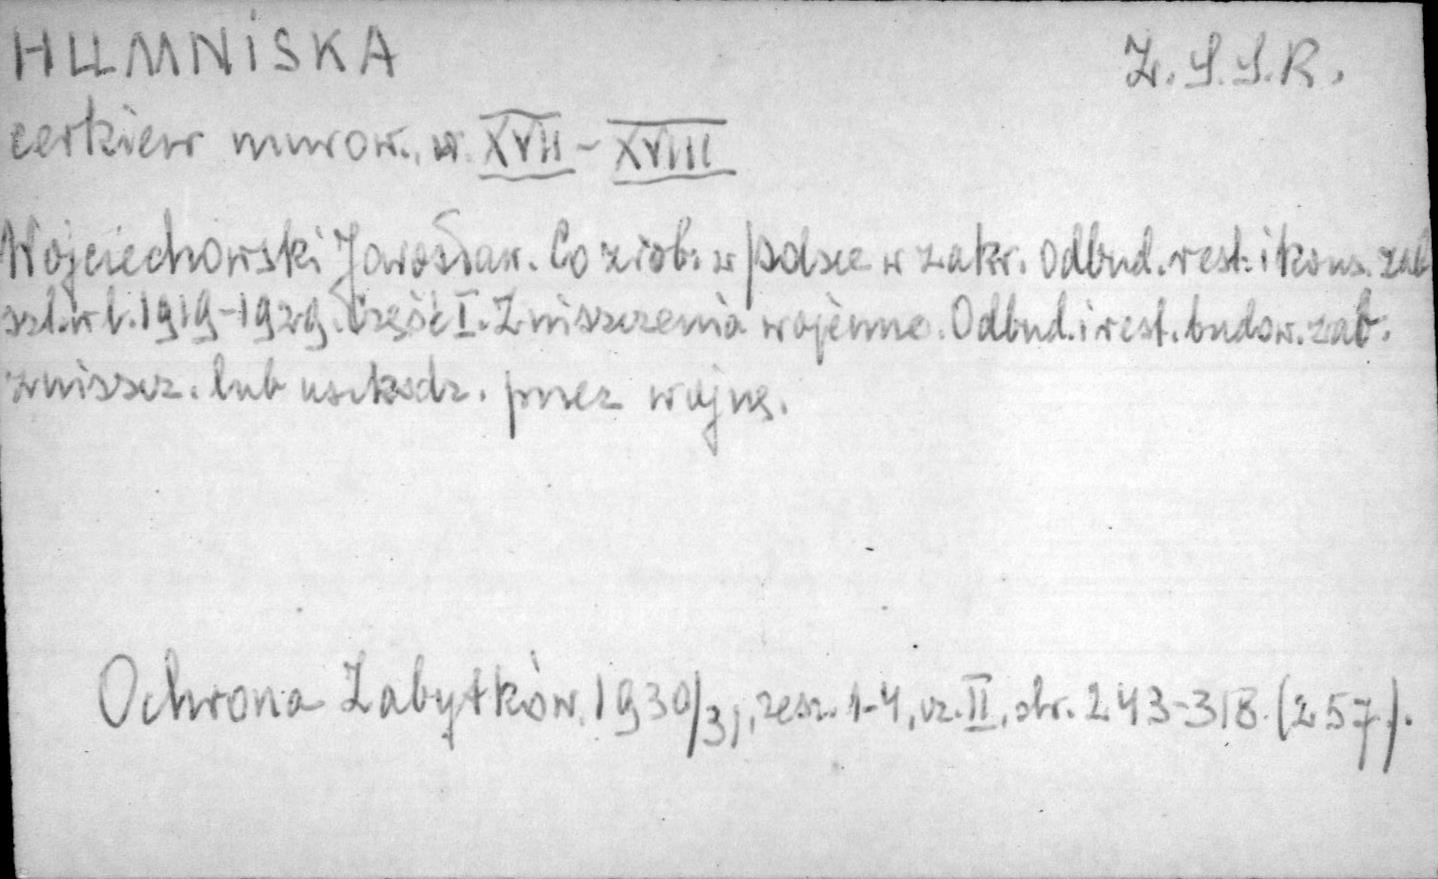 HUMNISKA
Z.S.S.R.
cerkiew murow., w. XVII - XVIII
Wojciechowski Jarosław. Co zrob. w Polsce w zakr. odbud. rest. i kons. zab
szt. w l. 1919-1929. Część I. Zniszczenia wojenne. Odbud. i rest. budow. zab.
zniszcz. lub uszkodz. przez wojnę.
Ochrona Zabytków, 1930/31, zesz. 1-4, cz. II, str. 243-318 (257).